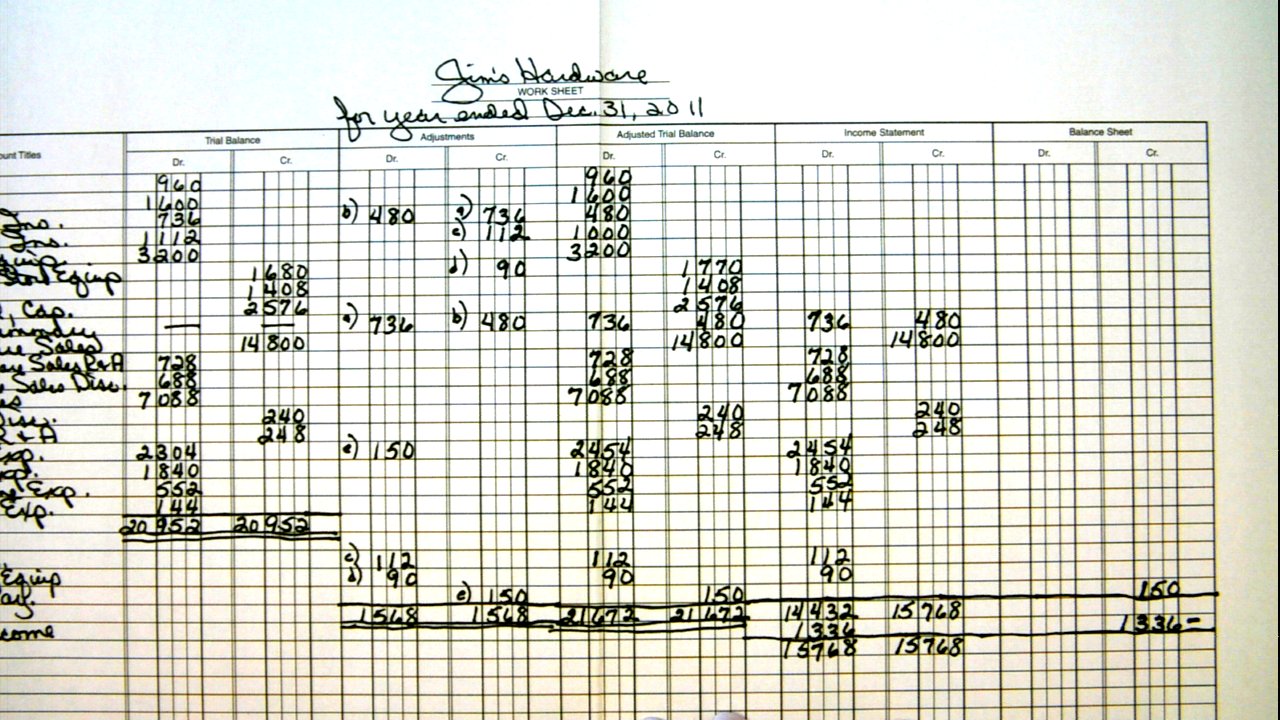 Jim's Hardware
WORK SHEET
for year ended Dec. 31, 2011
Trial Balance Adjustments Adjusted Trial Balance Income Statement Balance Sheet
unt Titles Dr. Cr. Dr. Cr. Dr. Cr. Dr. Cr. Dr. Cr.
960 960
1600 1600
Ins. 736 b) 480 a) 736 480
Ins. 1112 c) 112 1000
3200 3200
Store Equip 1680 d) 90 1770
1408 1408
Cap. 2576 2576
— — a) 736 b) 480 736 480 736 480
Sales 14800 14800 14800
Sales R & A 728 728 728
Sales Disc. 688 688 688
7088 7088 7088
240 240 240
R & A 248 248 248
Exp. 2304 e) 150 2454 2454
1840 1840 1840
Exp. 552 552 552
Exp. 144 144 144
20952 20952
c) 112 112 112
Equip d) 90 90 90
Pay. e) 150 150 150
1568 1568 21672 21672 14432 15768
come 1336 1336 –
15768 15768